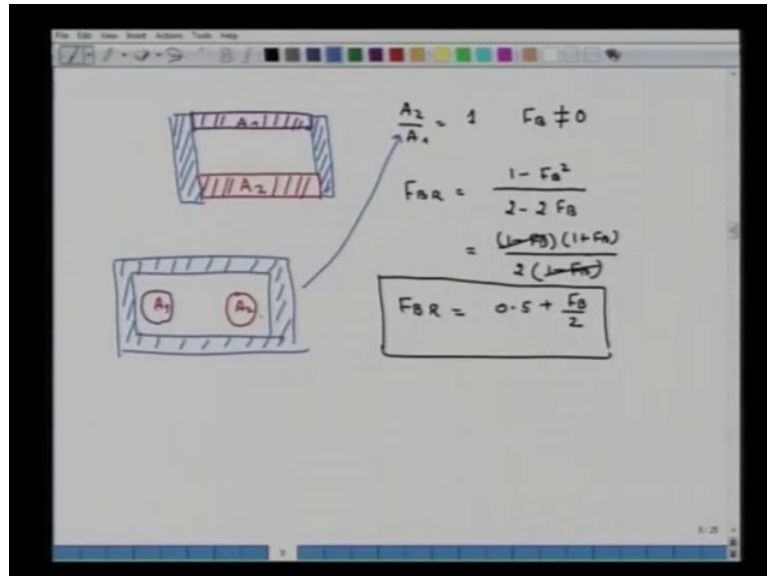 File Edit View Insert Actions Tools Help
A1
A2
A1
A2
A2/A1 = 1 FB ≠ 0
FBR = (1 - FB²)/(2 - 2 FB)
= (1-FB)(1+FB)/2(1-FB)
FBR = 0.5 + FB/2
9